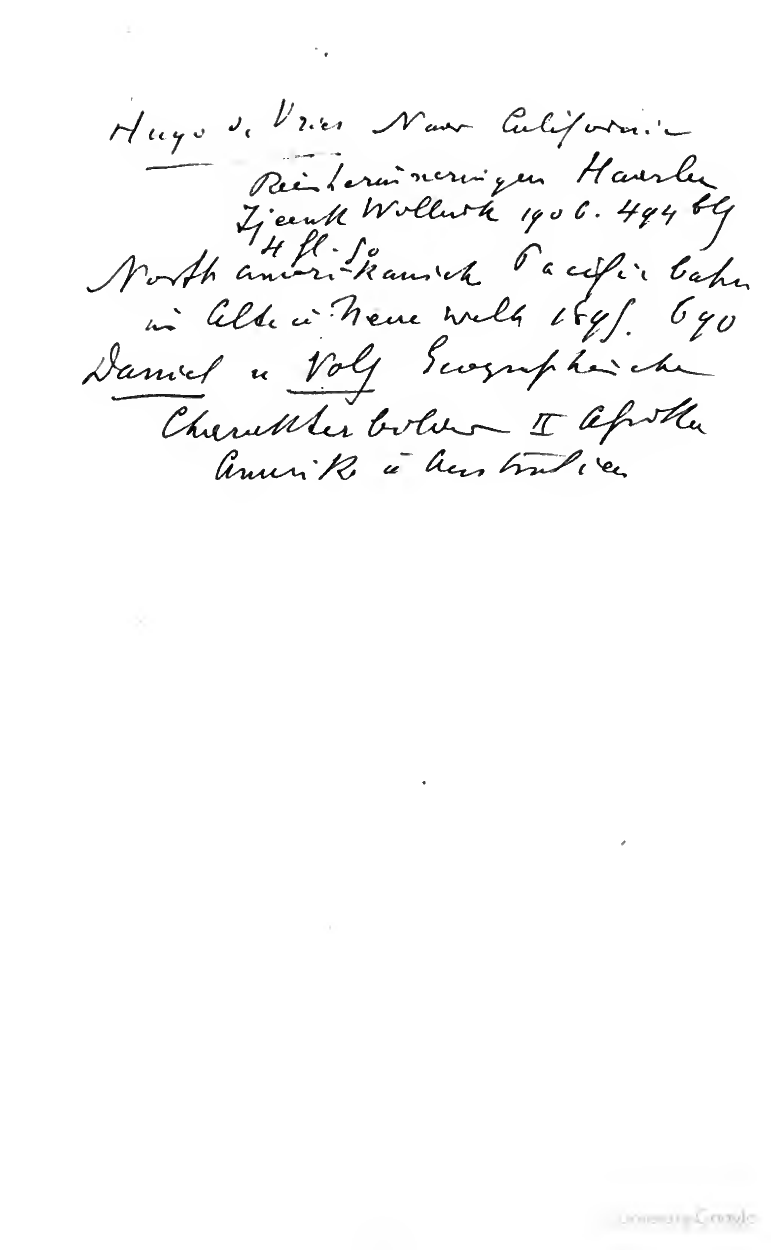 Hugo d. Vries Naar Californie
Reisherinneringen Haarlem
Tjeenk Willink 1906. 494 blg
4 fl. 50
North amerikanisch Pacific bahn
in Alte u Neue welt 1895. 690
Daniel u Volz Geographische
Charakter bilder II Afrika
Amerik u Australien